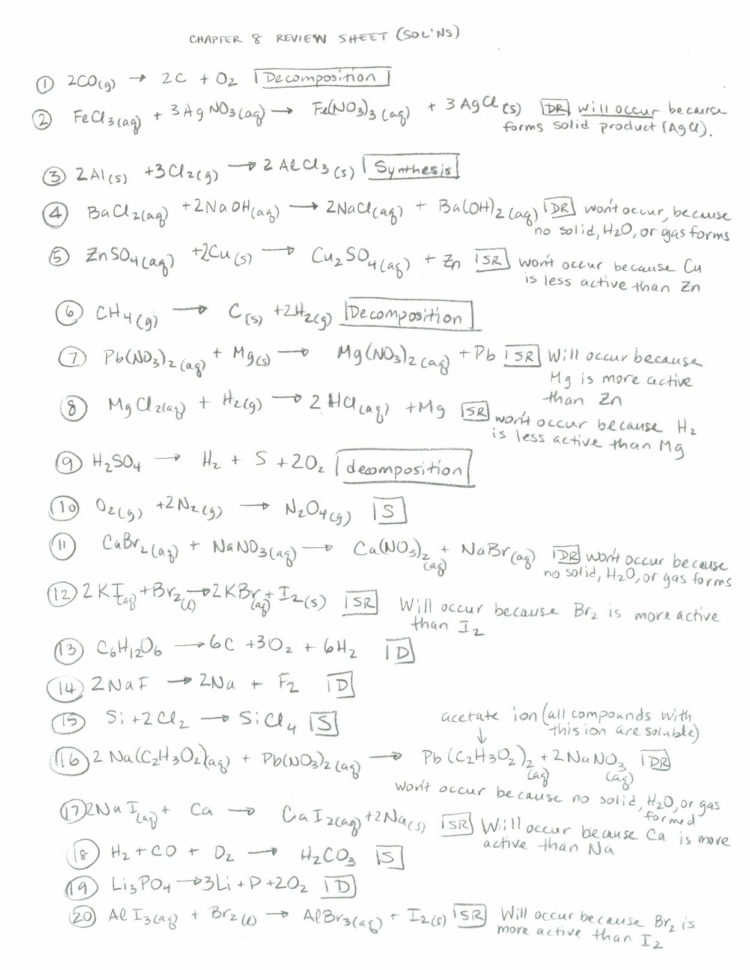 CHAPTER 8 REVIEW SHEET (SOL'NS)
① 2CO(g) → 2C + O2 Decomposition
② FeCl3(aq) + 3AgNO3(aq) → Fe(NO3)3(aq) + 3AgCl(s) DR will occur because
forms solid product (AgCl).
③ 2Al(s) + 3Cl2(g) → 2AlCl3(s) Synthesis
④ BaCl2(aq) + 2NaOH(aq) → 2NaCl(aq) + Ba(OH)2(aq) DR won't occur, because
no solid, H2O, or gas forms
⑤ ZnSO4(aq) + 2Cu(s) → Cu2SO4(aq) + Zn SR won't occur because Cu
is less active than Zn
⑥ CH4(g) → C(s) + 2H2(g) Decomposition
⑦ Pb(NO3)2(aq) + Mg(s) → Mg(NO3)2(aq) + Pb SR Will occur because
Mg is more active
than Zn
⑧ MgCl2(aq) + H2(g) → 2HCl(aq) + Mg SR won't occur because H2
is less active than Mg
⑨ H2SO4 → H2 + S + 2O2 decomposition
⑩ O2(g) + 2N2(g) → N2O4(g) S
⑪ CaBr2(aq) + NaNO3(aq) → Ca(NO3)2(aq) + NaBr(aq) DR won't occur because
no solid, H2O, or gas forms
⑫ 2KI(aq) + Br2(l) → 2KBr(aq) + I2(s) SR Will occur because Br2 is more active
than I2
⑬ C6H12O6 → 6C + 3O2 + 6H2 D
⑭ 2NaF → 2Na + F2 D
⑮ Si + 2Cl2 → SiCl4 S
acetate ion (all compounds with
this ion are soluble)
↓
⑯ 2Na(C2H3O2)(aq) + Pb(NO3)2(aq) → Pb(C2H3O2)2(aq) + 2NaNO3(aq) DR
won't occur because no solid, H2O, or gas
formed
⑰ 2NaI(aq) + Ca → CaI2(aq) + 2Na(s) SR Will occur because Ca is more
active than Na
⑱ H2 + CO + O2 → H2CO3 S
⑲ Li3PO4 → 3Li + P + 2O2 D
⑳ AlI3(aq) + Br2(l) → AlBr3(aq) + I2(s) SR Will occur because Br2 is
more active than I2